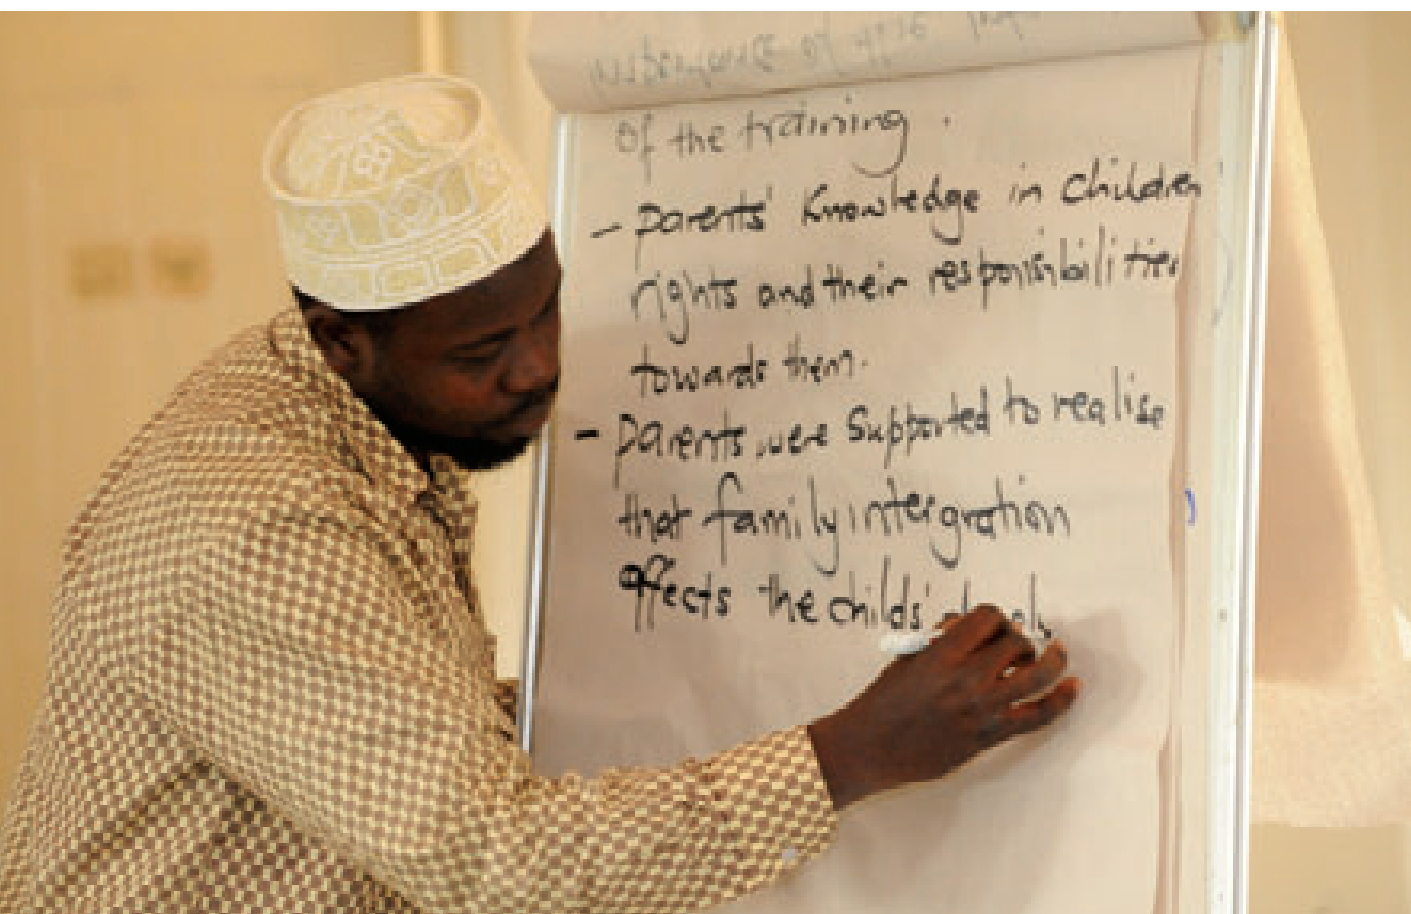 of the training.
- parents' Knowledge in Children
rights and their responsibilities
towards them.
- parents were Supported to realise
that family intergration
affects the childs'